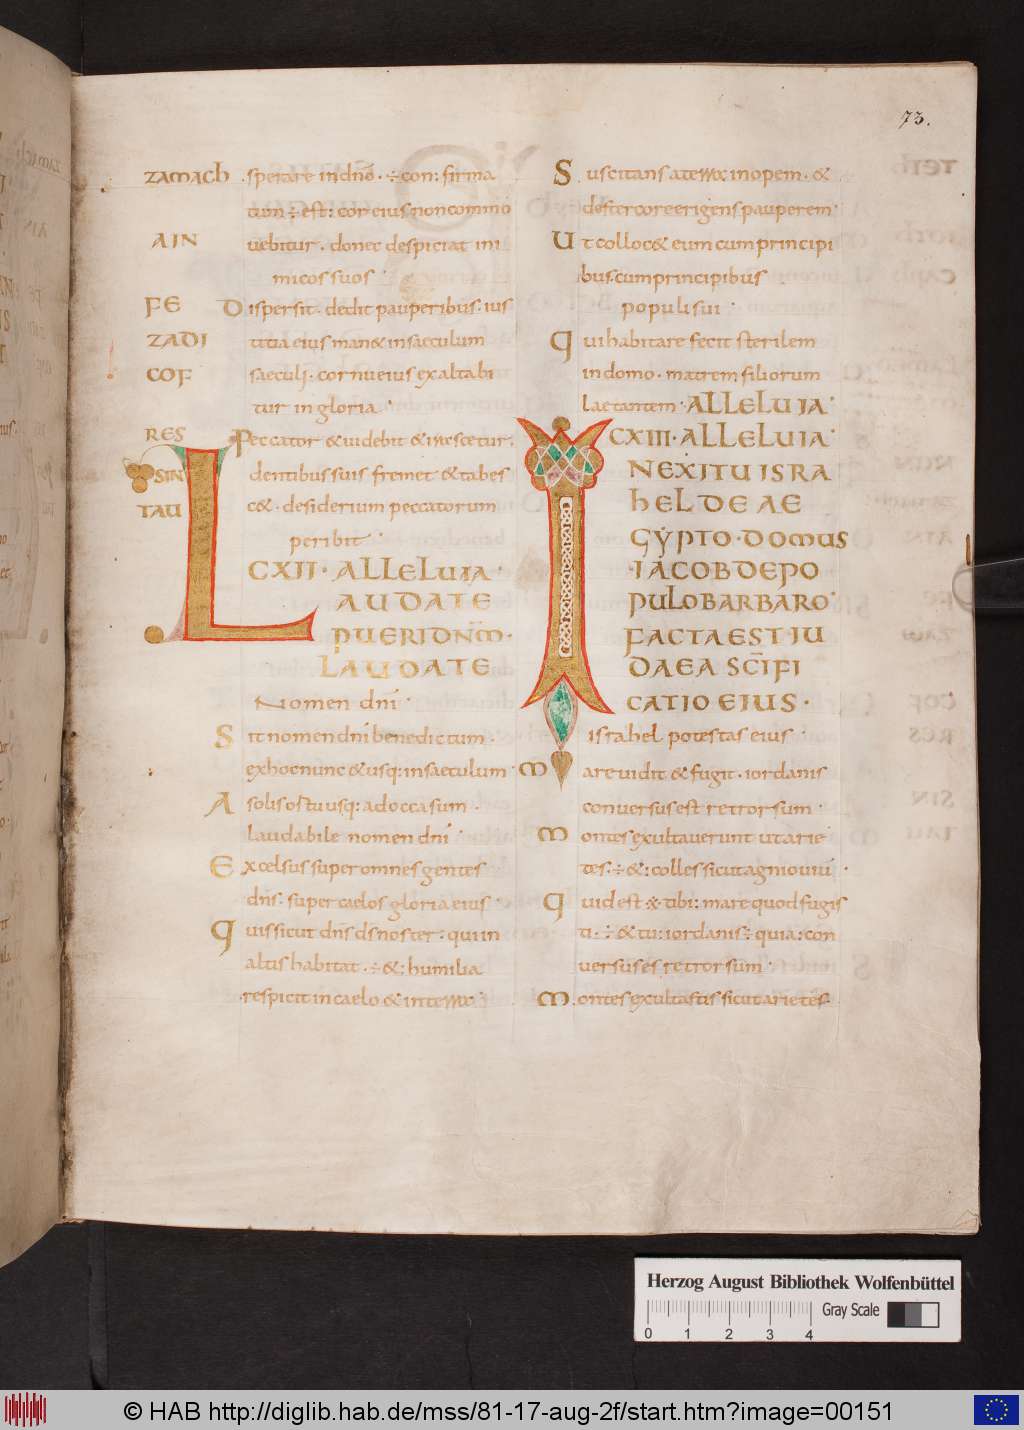 73.
ZAMACH sperare in dnō · ÷ con: firma
tum ÷ est: cor eius non commo
AIN uebitur · donec despiciat ini
micos suos ·
FE Dispersit · dedit pauperibus · ius
ZADI titia eius man& in saeculum
COF saeculi · cornu eius exaltabi
tur in gloria ·
RES Peccator & uidebit & irascetur ·
SIN dentibus suis fremet & tabes
TAU c& · desiderium peccatorum
peribit ·
L CXII · ALLELUIA ·
AUDATE
PUERI DN̄M ·
LAUDATE
Nomen dnī ·
Sit nomen dnī benedictum ·
ex hoc nunc & usq: in saeculum ·
A solis ortu usq: ad occasum ·
laudabile nomen dnī ·
Excelsus super omnes gentes
dns̄ · super caelos gloria eius ·
Quis sicut dns̄ ds̄ noster · qui in
altis habitat · ÷ &: humilia
respicit in caelo & in terra ·
Suscitans a terra inopem · &
de stercore erigens pauperem ·
Ut colloc& eum cum principi
bus · cum principibus
populi sui ·
Qui habitare fecit sterilem
in domo · matrem filiorum
laetantem · ALLELUIA ·
I CXIII · ALLELUIA ·
N EXITU ISRA
HEL DE AE
GYPTO · DOMUS
· IACOB DE PO
PULO BARBARO ·
FACTA EST IU
DAEA SC̄IFI
CATIO EIUS ·
israhel potestas eius ·
Mare uidit & fugit · iordanis
conuersus est retrorsum ·
Montes exultauerunt ut arie
tes · ÷ &: colles sicut agni ouiū ·
Quid est ※ tibi: mare quod fugis
ti · ÷ & tu: iordanis ÷ quia: con
uersus es retrorsum ·
Montes exultastis sicut arietes ·
Herzog August Bibliothek Wolfenbüttel
Gray Scale
0 1 2 3 4
© HAB http://diglib.hab.de/mss/81-17-aug-2f/start.htm?image=00151